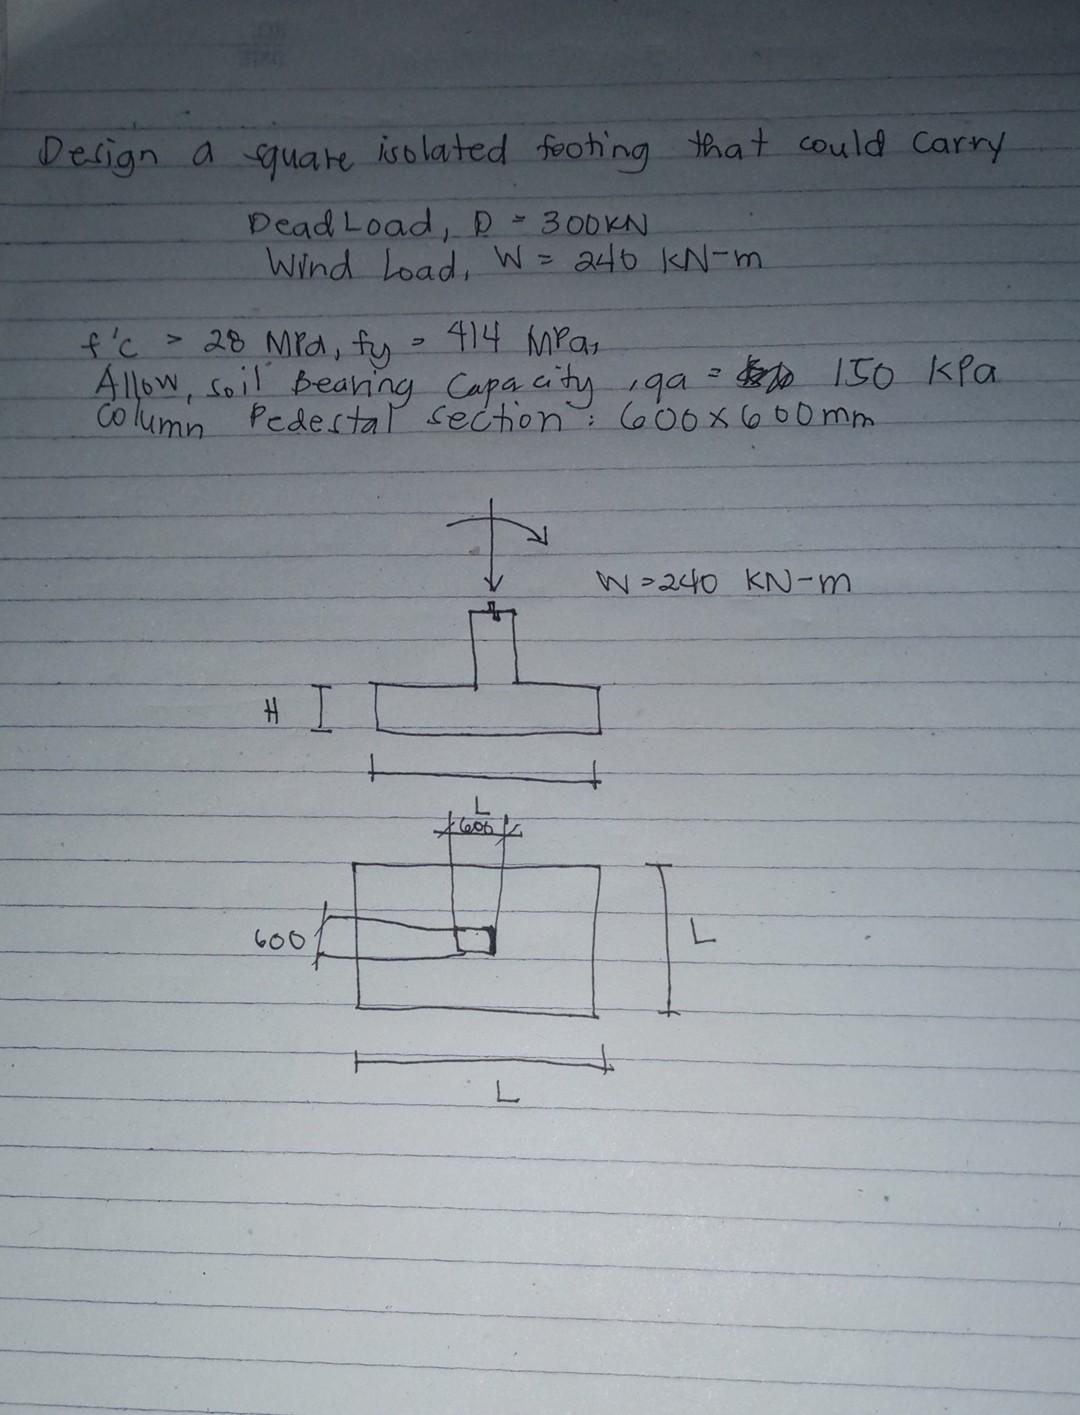 Design a square isolated footing that could carry
Dead Load, D = 300KN
Wind Load, W = 240 KN-m
f'c = 28 MPa, fy = 414 MPa,
Allow, soil Bearing Capacity , qa = 150 KPa
Column Pedestal section : 600 x 600mm
W = 240 KN-m
H
L
600
600
L
L